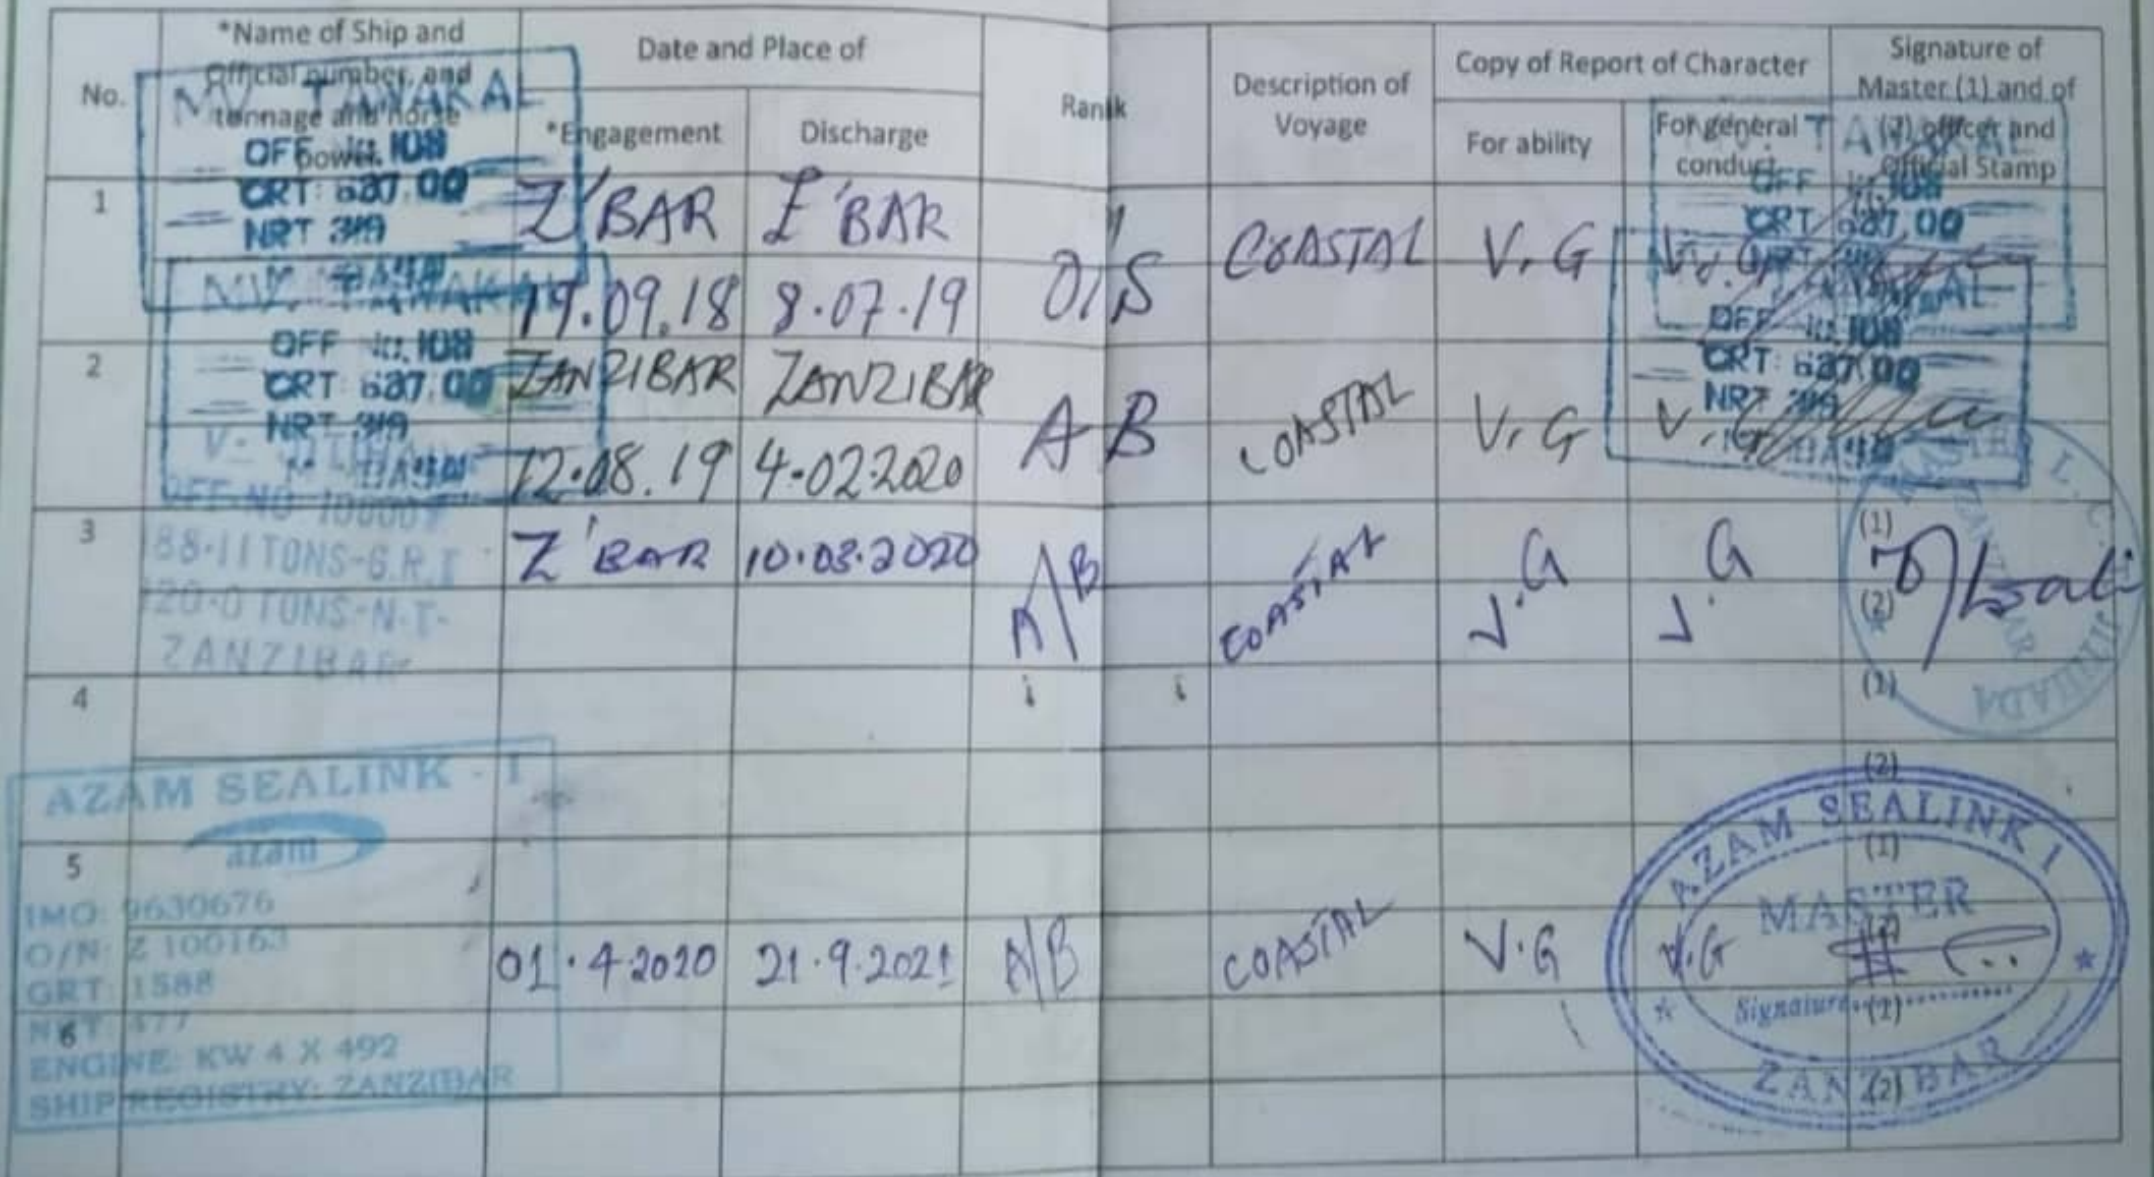 No.
*Name of Ship and
Official number, and
tonnage and horse
power.
Date and Place of
*Engagement
Discharge
Rank
Description of
Voyage
Copy of Report of Character
For ability
For general
conduct
Signature of
Master (1) and of
(2) officer and
Official Stamp
MV. TAWAKAL
OFF 108
GRT: 687.00
NRT 319
1
Z'BAR
19.09.18
Z'BAR
8.07.19
O/S
COASTAL
V.G
V.G
TAWAKAL
OFF 108
GRT 687.00
MV. TAWAKAL
OFF 108
GRT: 687.00
NRT 319
2
ZANZIBAR
12.08.19
ZANZIBAR
4.02.2020
AB
COASTAL
V.G
V.G
OFF 108
GRT: 687.00
NRT 319
3
OFF-NO
88-11 TONS-G.R.T
120-0 TONS-N-T-
ZANZIBAR
Z'BAR
10.03.2020
A/B
COASTAL
V.G
V.G
(1)
(2)
4
(1)
(2)
AZAM SEALINK - 1
azam
5
IMO: 9630676
O/N: Z 100163
GRT: 1588
NRT: 477
ENGINE: KW 4 X 492
SHIP REGISTRY: ZANZIBAR
01.4.2020
21.9.2021
A/B
COASTAL
V.G
V.G
AZAM SEALINK 1
(1)
MASTER
(2)
Signature
(1)
ZANZIBAR
(2)
6